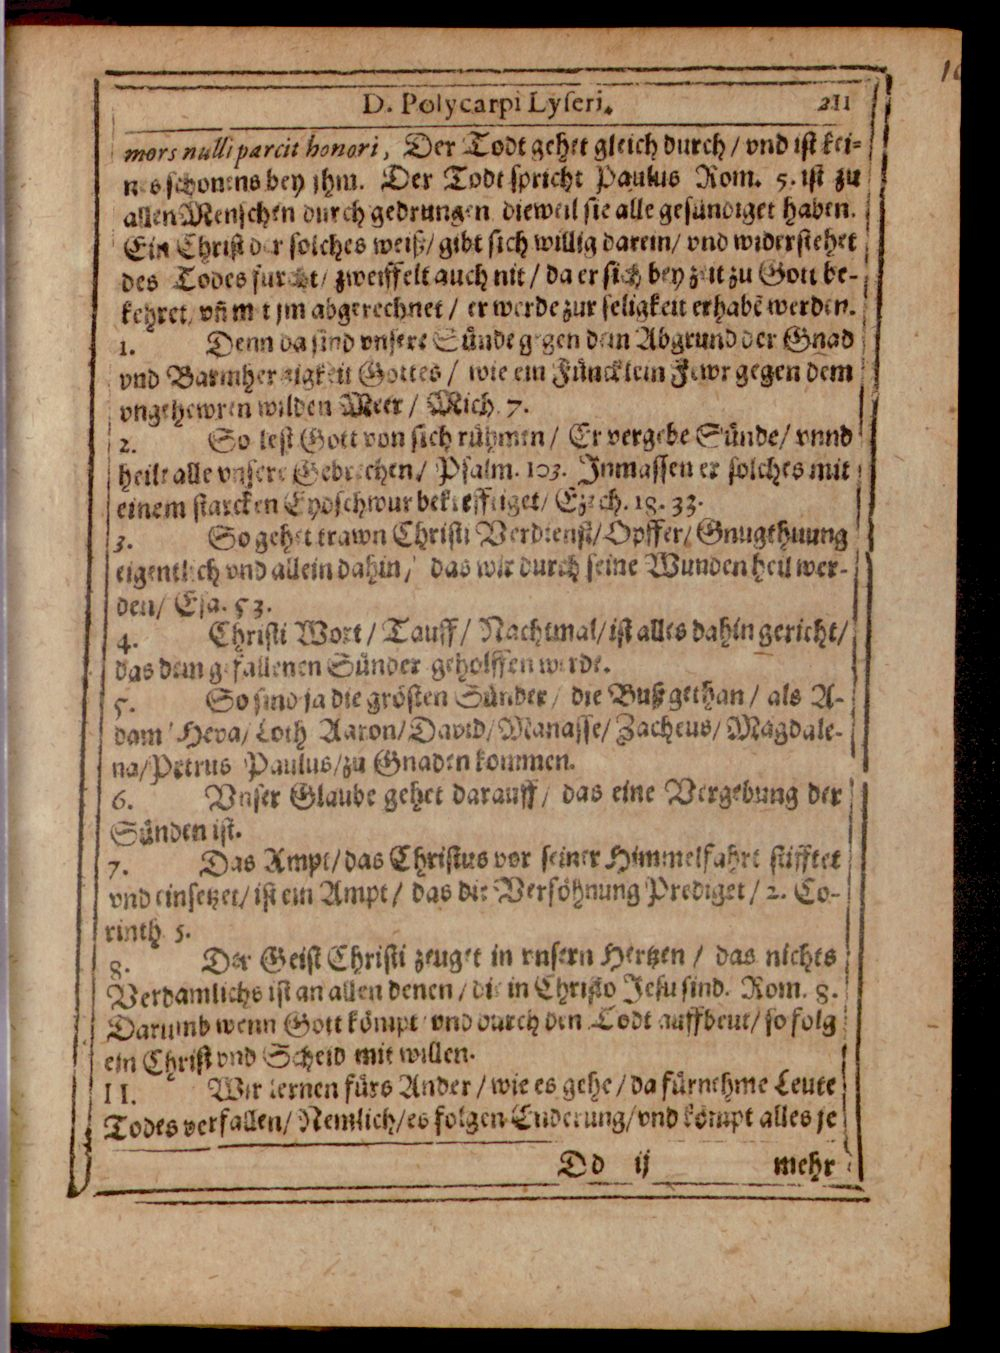 D. Polycarpi Lyseri. 211
mors nulli parcit honori, Der Todt gehet gleich durch / vnd ist kei-
nes schonens bey jhm. Der Todt spricht Paulus Rom. 5. ist zu
allen Menschen durch gedrungen dieweil sie alle gesündiget haben.
Ein Christ der solches weiß / gibt sich willig darein / vnd widerstehet
des Todes furcht / zweiffelt auch nit / da er sich bey zeit zu Gott be-
kehret, vñ mit jm abgerechnet / er werde zur seligkeit erhabẽ werden.
1. Denn da sind vnsere Sünde gegen dem Abgrund der Gnad
vnd Barmhertzigkeit Gottes / wie ein Füncklein Fewr gegen dem
vngehewren wilden Meer / Mich. 7.
2. So lest Gott von sich rühmen / Er vergebe Sünde / vnnd
heile alle vnsere Gebrechen / Psalm. 103. Inmassen er solches mit
einem starcken Eydschwur bekrefftiget / Ezech. 18. 33.
3. So gehet trawn Christi Verdienst / Opffer / Gnugthuung
eigentlich vnd allein dahin / das wir durch seine Wunden heil wer-
den / Esa. 53.
4. Christi Wort / Tauff / Nachtmal / ist alles dahin gericht /
das dem gefallenen Sünder geholffen werde.
5. So sind ja die grösten Sünder / die Buß gethan / als A-
dam Heva / Loth Aaron / David / Manasse / Zacheus / Magdale-
na / Petrus Paulus / zu Gnaden kommen.
6. Vnser Glaube gehet darauff / das eine Vergebung der
Sünden ist.
7. Das Ampt / das Christus vor seiner Himmelfahrt stifftet
vnd einsetzet / ist ein Ampt / das die Versöhnung Prediget / 2. Co-
rinth. 5.
8. Der Geist Christi zeuget in vnsern Hertzen / das nichts
Verdamlichs ist an allen denen / die in Christo Jesu sind. Rom. 8.
Darumb wenn Gott kömpt vnd durch den Todt auffbeut / so folg
ein Christ vnd Scheid mit willen.
II. Wir lernen fürs Ander / wie es gehe / da fürnehme Leute
Todes verfallen / Nemlich / es folgen Enderung / vnd kömpt alles je
Dd ij mehr